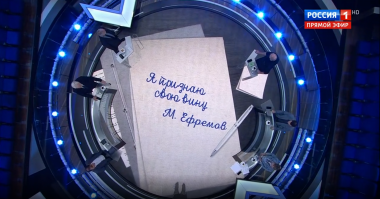 РОССИЯ 1 HD
ПРЯМОЙ ЭФИР
Я признаю
свою вину
М. Ефремов